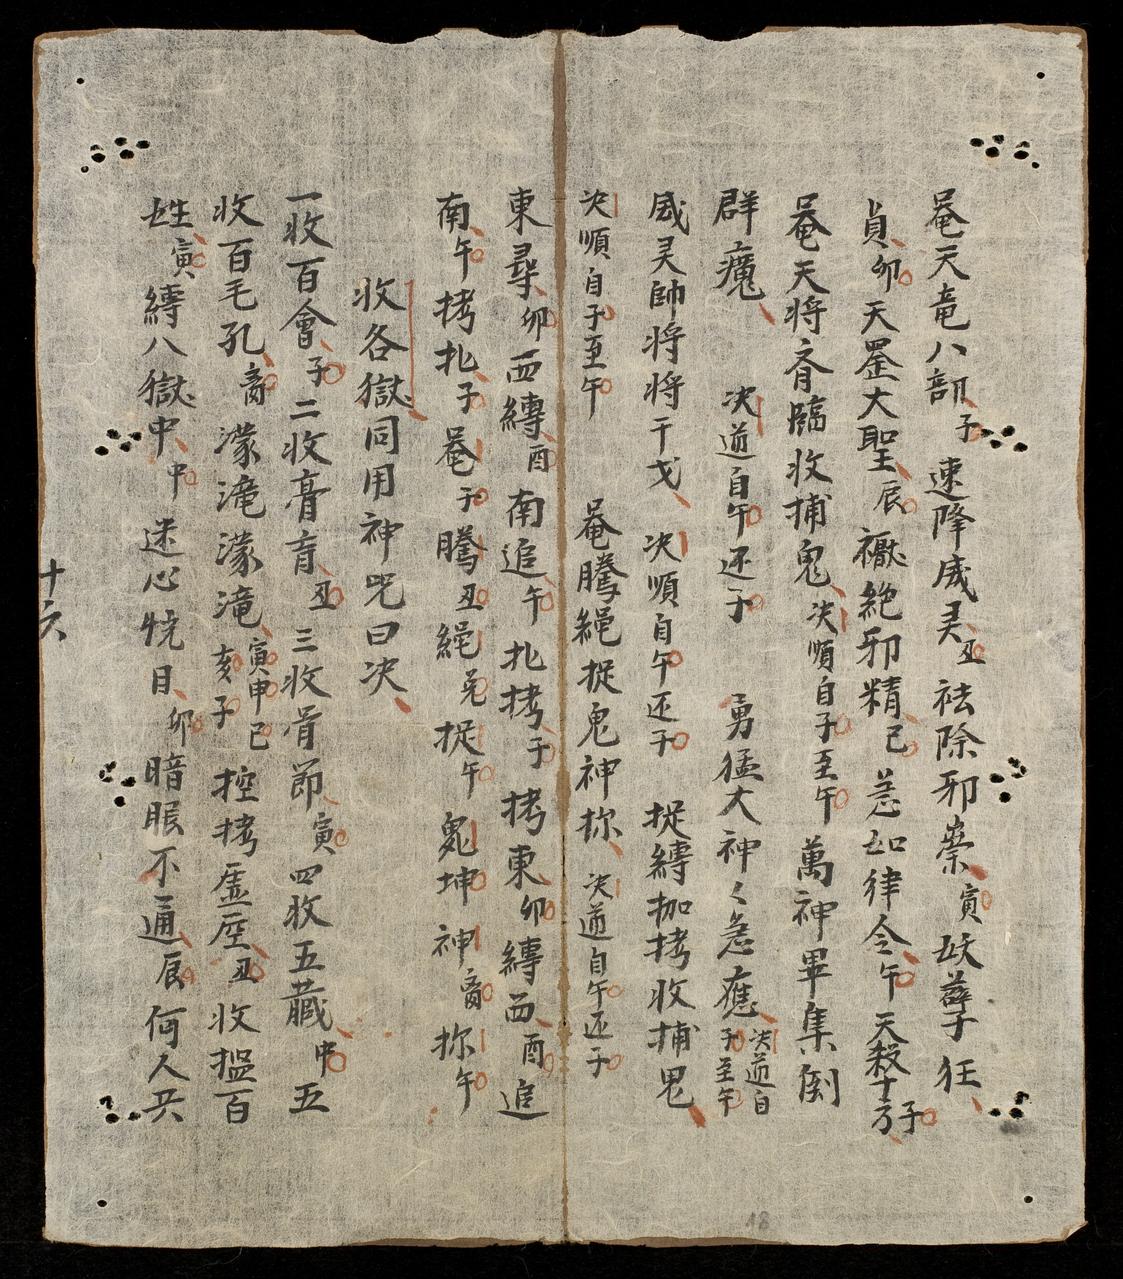 唵天竜八部子 速降威灵丑祛除邪祟寅妖孽狂
貞卯天罡大聖辰禳絶邪精已急如律令午天殺十方子
唵天将齊臨收捕鬼决順自子至午 萬神畢集倒
群魔 决逆自午还子 勇猛大神〻急應决逆自子至午
威灵帥将将干戈 决順自午还子 捉縛枷拷收捕鬼
决順自子至午 唵騰繩捉鬼神 决逆自午还子
東尋卯西縛酉南追午北拷子拷東卯縛西酉追
南午拷北子唵子騰丑繩 捉午鬼坤神 午
收各獄同用神咒曰决
一收百會子二收膏肓丑三收骨節寅四收五藏申五
收百毛孔 濛滝濛滝寅申巳亥子控拷虚 丑收搵百
姓寅縛八獄中申迷心 目卯暗眼不通辰何人共
十六
18